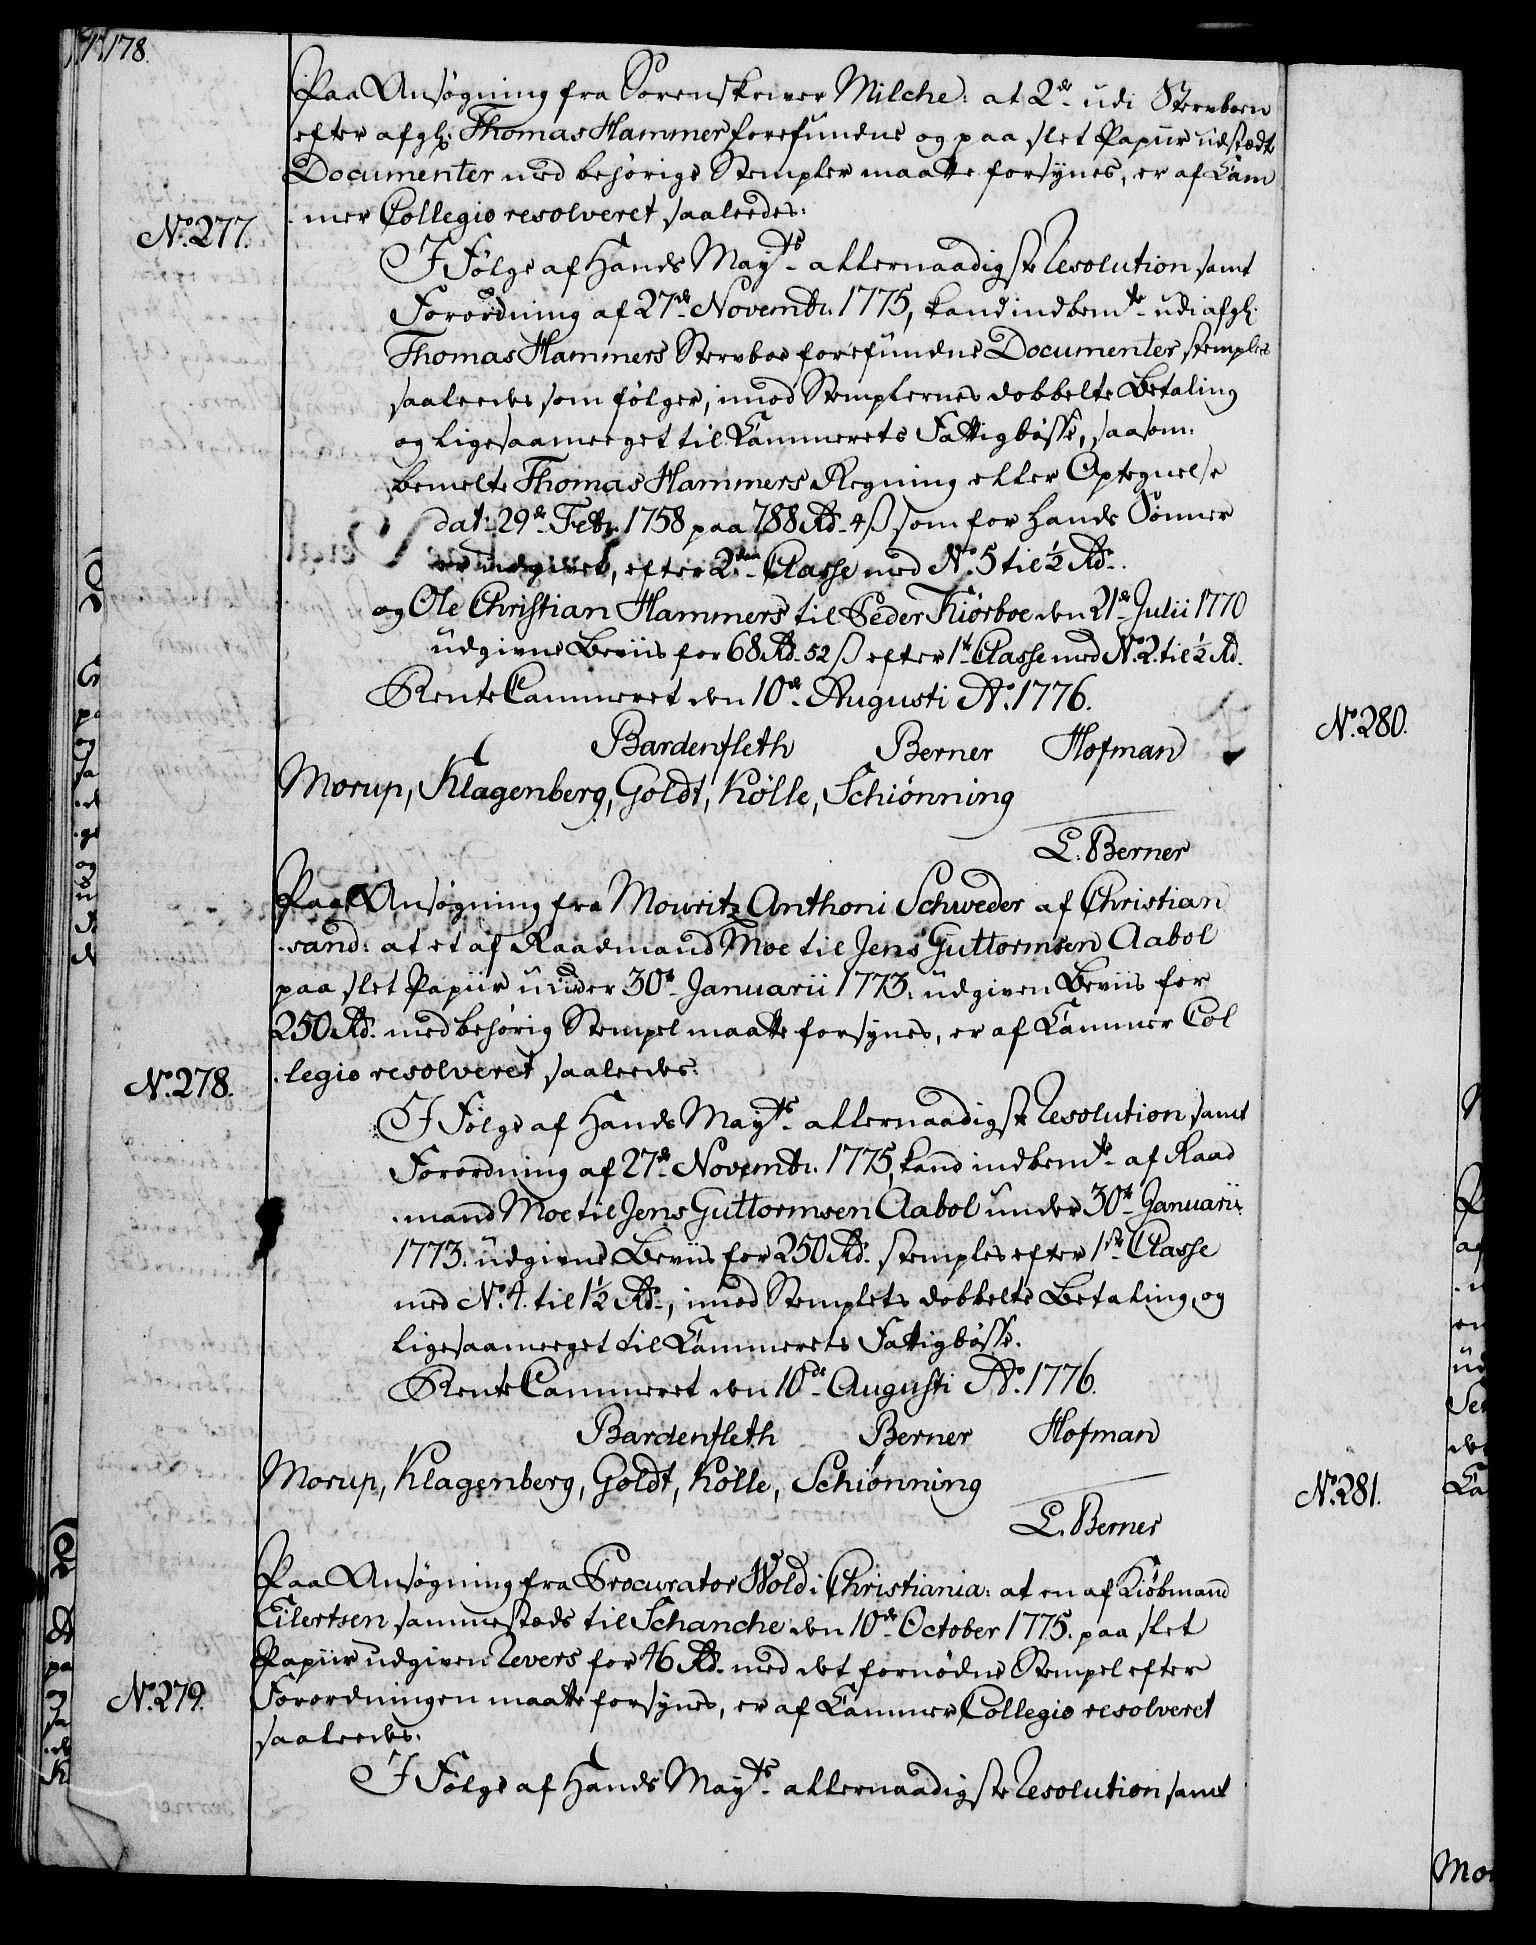 178.
Paa Ansøgning fra Sorenskriver Milche: at 2de udi Stervboen
efter afgl: Thomas Hammer forefundne og paa slet Papiir udstædte
Documenter med behørige Stempler maatte forsynes, er af Cam
No. 277. mer Collegio resolveret saaledes:
I Følge af Hands Mayts allernaadigste Resolution samt
Forordning af 27de Novembr. 1775, kand indbemte udi afgl:
Thomas Hammers Stervboe forefundne Documenter stemples
saaledes som følger, imod Stemplernes dobbelte Betaling
og ligesaameget til Cammerets Fattigbøsse, saasom:
bemelte Thomas Hammers Regning eller Optegnelse
dat: 29de Febr. 1758 paa 788 Rd. 4 ß som for hands Sønner
er udgivet, efter 2den Classe med No. 5 til ½ Rd.
og Ole Christian Hammers til Peder Kiørboe den 21de Julii 1770
udgivne Beviis for 68 Rd. 52 ß efter 1te Classe med No. 2. til ½ Rd.
RenteCammeret den 10de Augusti Ao. 1776.
Bardenfleth Berner Hofman
Morup, Klagenberg, Goldt, Kølle, Schiønning
L. Berner
Paa Ansøgning fra Mouritz Anthoni Schweder af Christian
sand: at et af Raadmand Moe til Jens Guttormsen Aabol
paa slet Papiir under 30te Januarii 1773. udgiven Beviis for
250 Rd. med behørig Stempel maatte forsynes, er af Cammer Col
No. 278. legio resolveret saaledes:
I Følge af Hands Mayts allernaadigste Resolution samt
Forordning af 27de Novembr. 1775, kand indbemte af Raad
mand Moe til Jens Guttormsen Aabol under 30te Januarii
1773. udgivne Beviis for 250 Rd. stemples efter 1ste Classe
med No. 4. til 1½ Rd., imod Stemplets dobbelte Betaling, og
ligesaameget til Cammerets Fattigbøsse.
RenteCammeret den 10de Augusti Ao. 1776.
Bardenfleth Berner Hofman
Morup, Klagenberg, Goldt, Kølle, Schiønning
L. Berner
Paa Ansøgning fra Procurator Wold i Christiania: at en af Kiøbmand
Eilertsen sammestæds til Schanche den 10de October 1775. paa slet
Papiir udgiven Revers for 46 Rd. med det fornødne Stempel efter
No. 279. Forordningen maatte forsynes, er af Cammer Collegio resolveret
saaledes:
I Følge af Hands Mayts allernaadigste Resolution samt
No. 280.
No. 281.